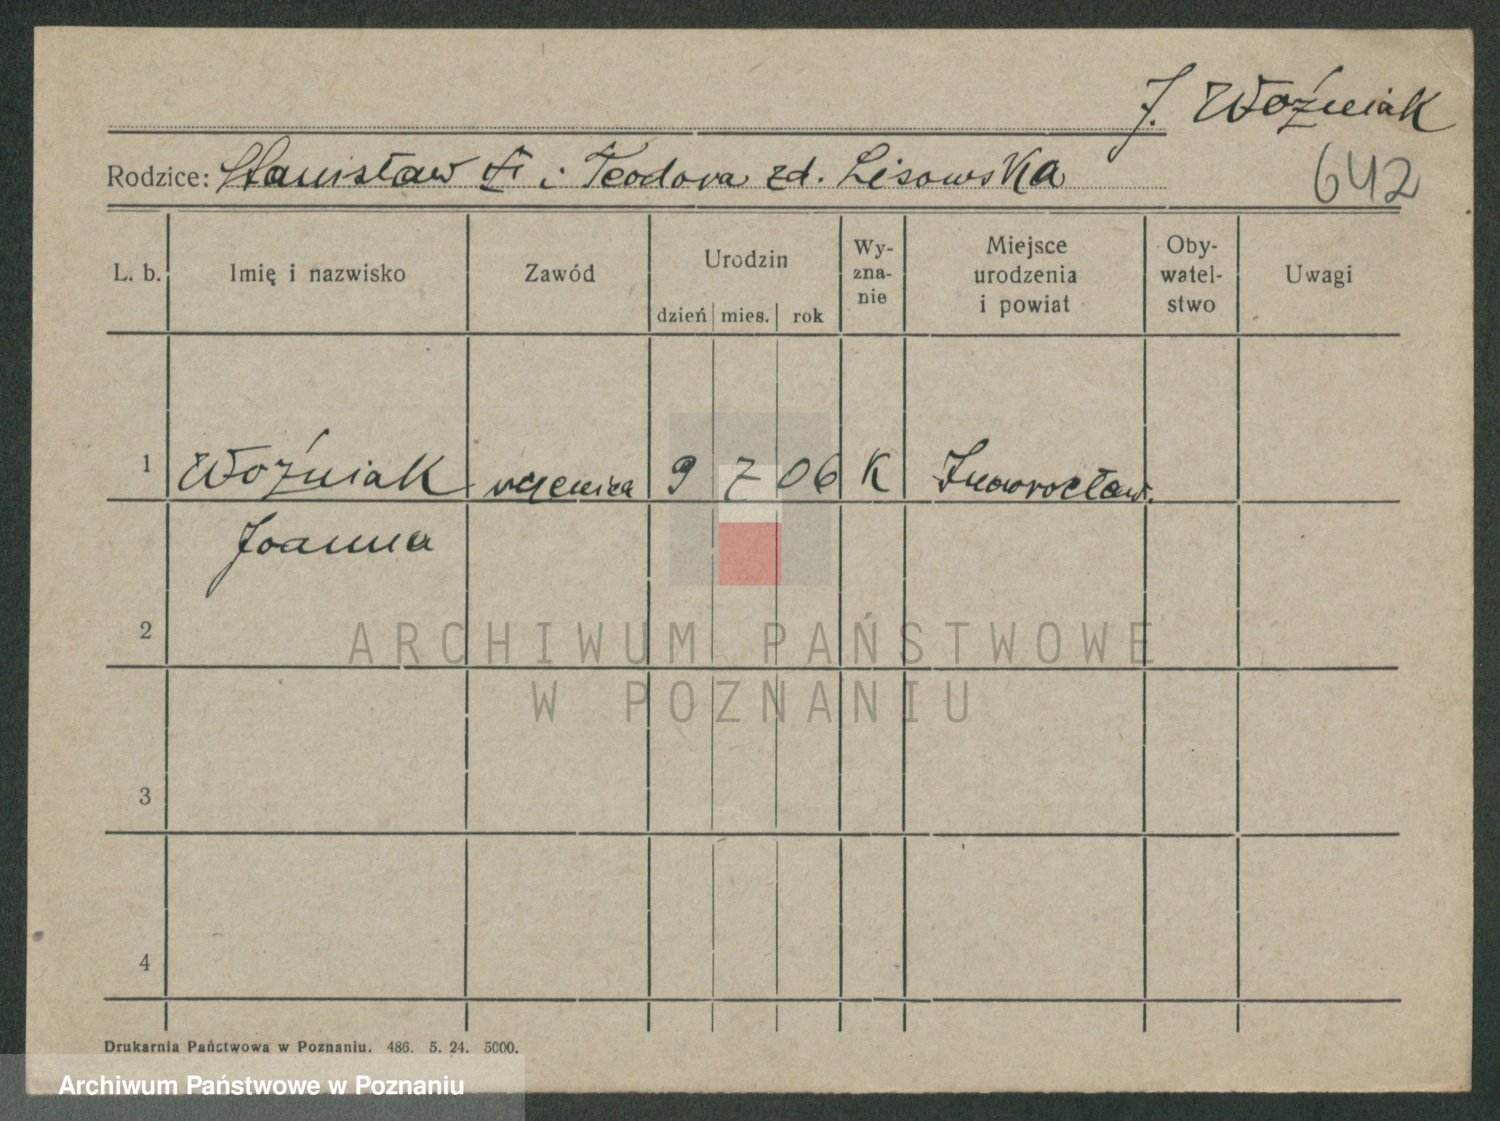 J. Woźniak
Rodzice: Stanisław i Teodora zd. Lisowska
642
L. b. Imię i nazwisko Zawód Urodzin Wy-zna-nie Miejsce urodzenia i powiat Oby-watel-stwo Uwagi
dzień mies. rok
1 Woźniak 9 7 06 K Inowrocław.
Joanna
2
ARCHIWUM PAŃSTWOWE
W POZNANIU
3
4
Drukarnia Państwowa w Poznaniu. 486. 5. 24. 5000.
Archiwum Państwowe w Poznaniu